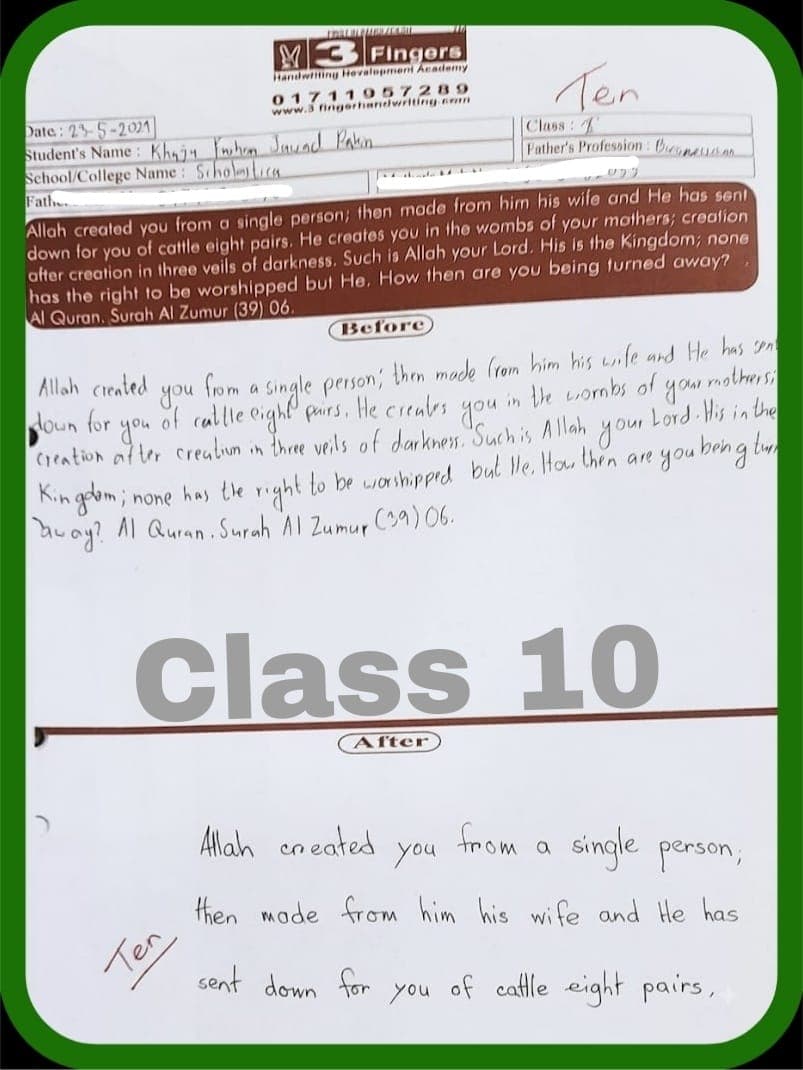 3 Fingers
Handwriting Hevalopment Academy
01711957289
www.3 fingerhandwriting.com
Ten
Date : 23-5-2021
Class : X
Student's Name : Jawad
Father's Profession :
School/College Name : Scholastica
Allah created you from a single person; then made from him his wife and He has sent
down for you of cattle eight pairs. He creates you in the wombs of your mothers; creation
after creation in three veils of darkness. Such is Allah your Lord. His is the Kingdom; none
has the right to be worshipped but He. How then are you being turned away?
Al Quran. Surah Al Zumur (39) 06.
Before
Allah created you from a single person; then made from him his wife and He has sent
down for you of cattle eight pairs. He creates you in the wombs of your mothers;
Creation after creation in three veils of darkness. Such is Allah your Lord. His in the
Kingdom; none has the right to be worshipped but He. How then are you being turn
away? Al Quran. Surah Al Zumur (39) 06.
Class 10
After
Allah created you from a single person;
then made from him his wife and He has
Ten
sent down for you of cattle eight pairs.